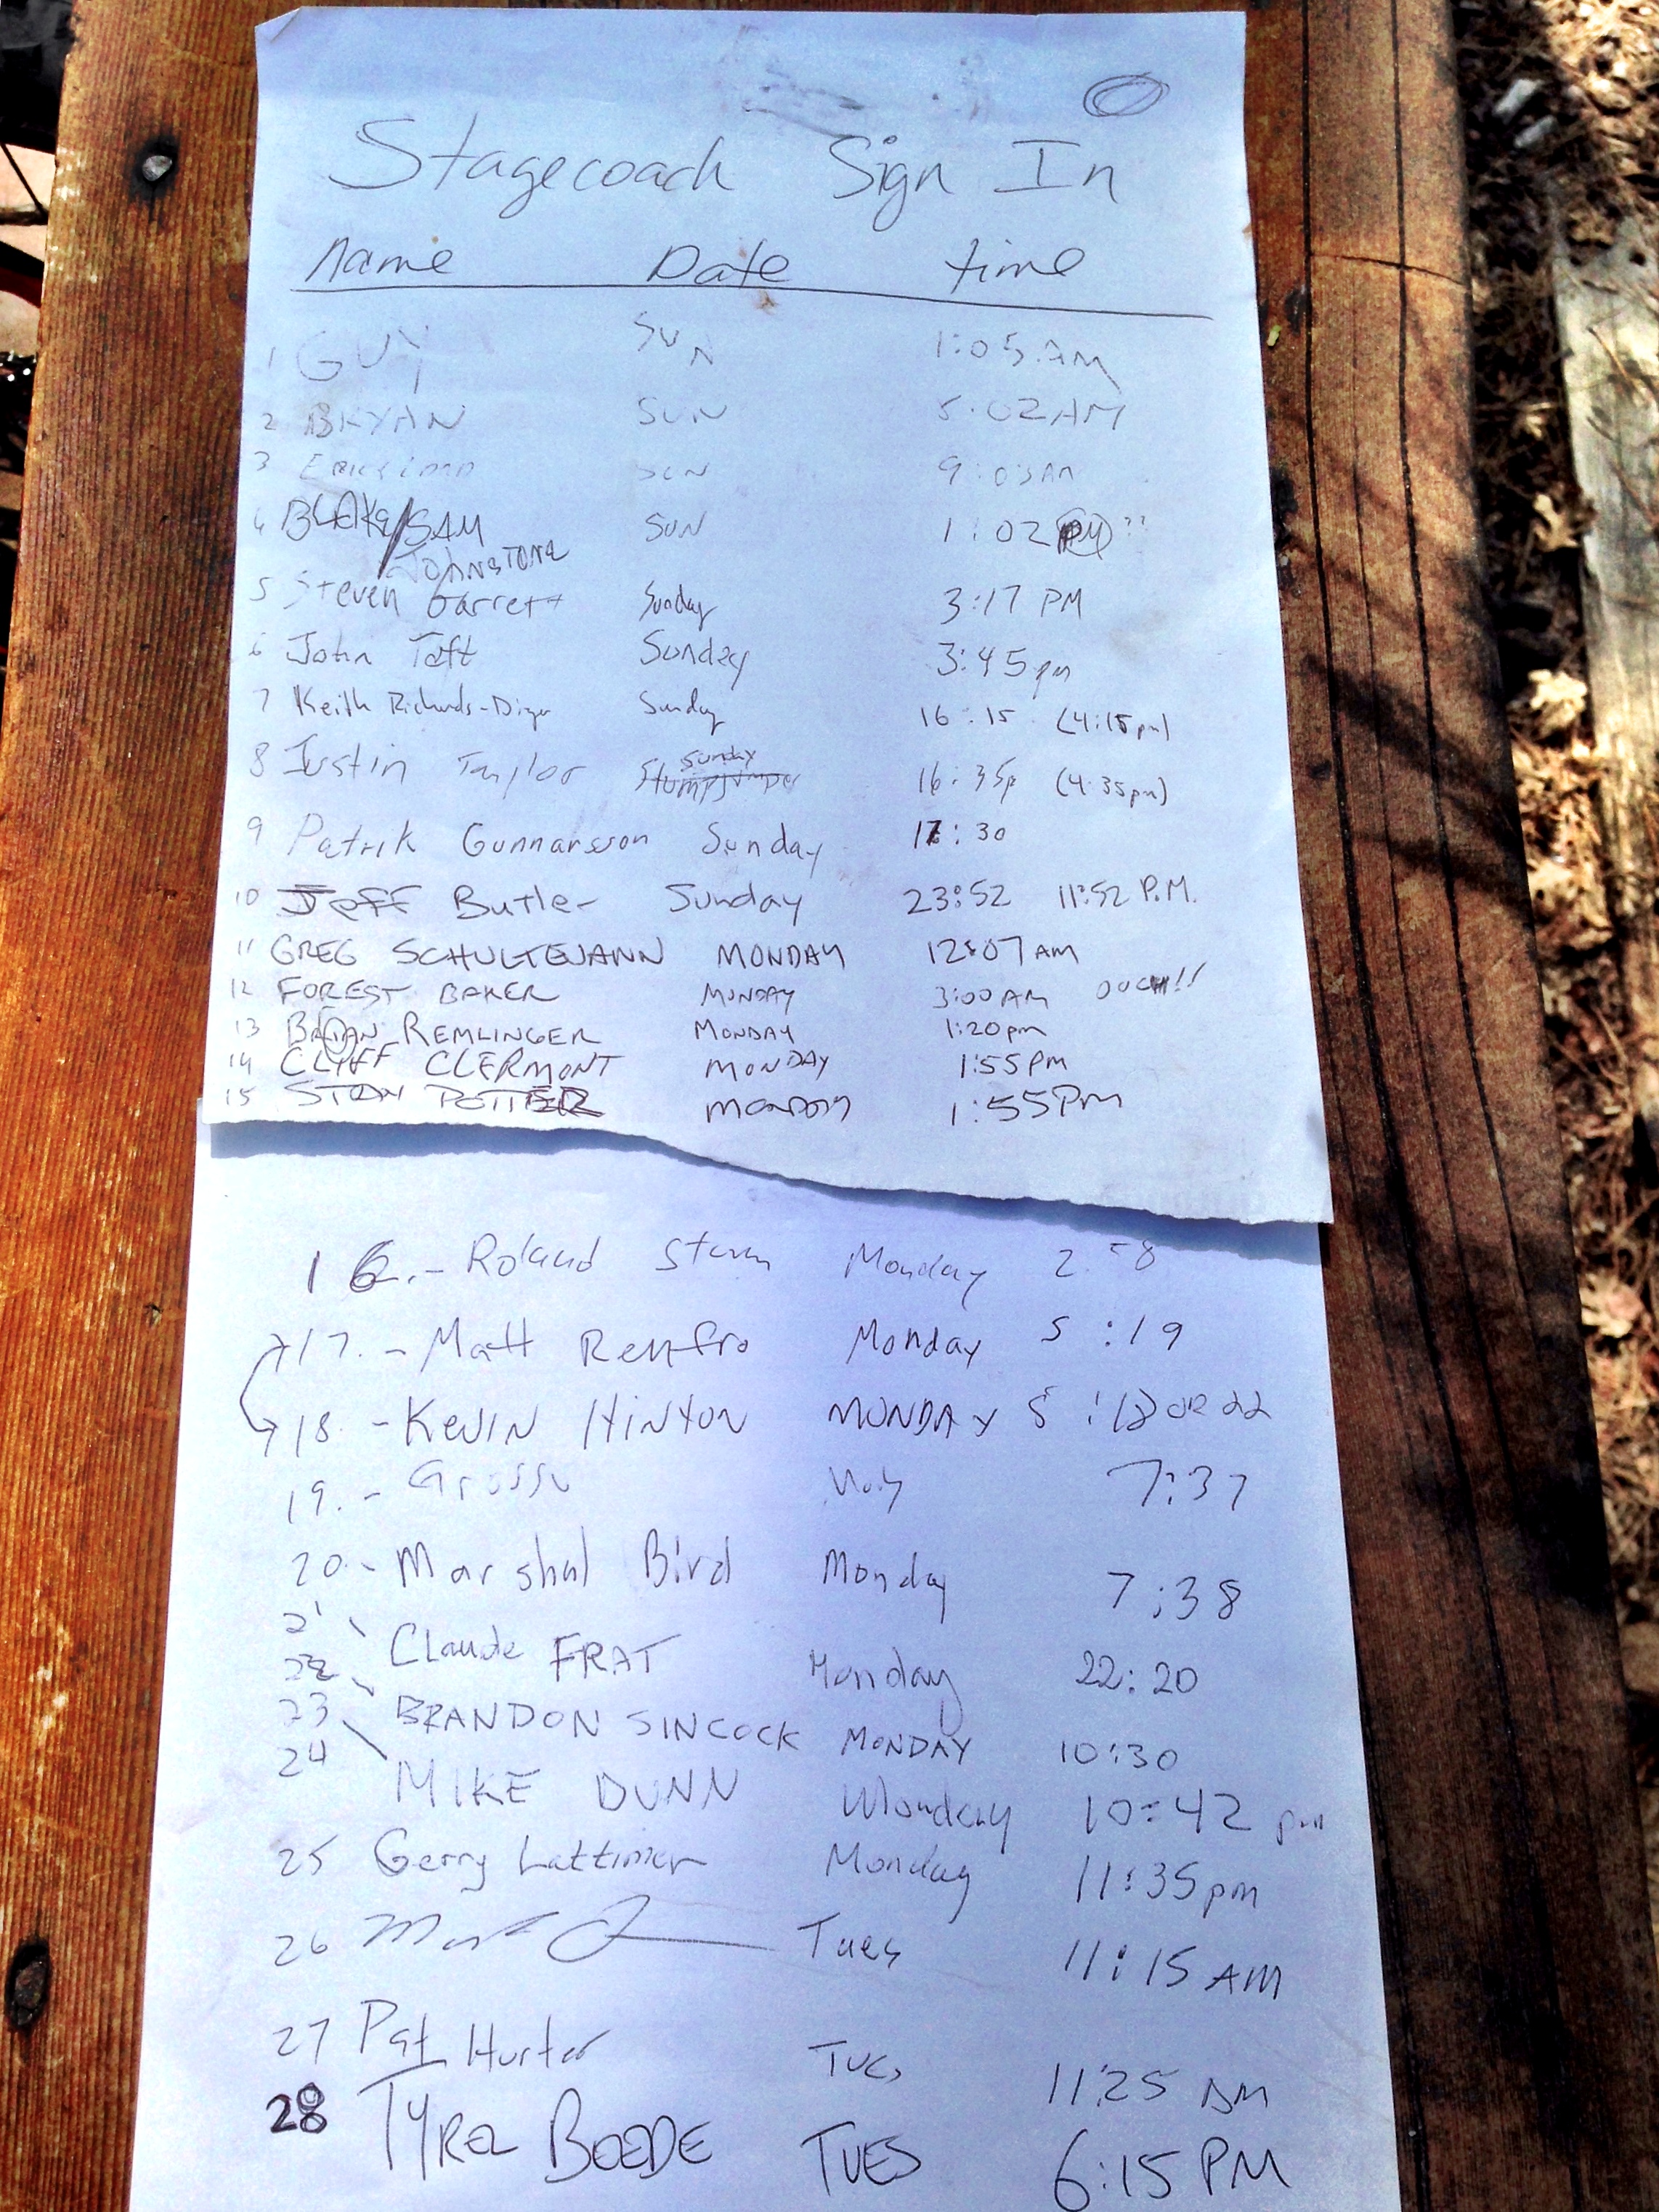 Stagecoach Sign In
Name Date time
1 GUY SUN 1:05 AM
2 BRYAN SUN 5:02 AM
3 SUN 9:03 AM
4 BLAKE/SAM SUN 1:02 PM ??
JOHNSTONE
5 Steven Garrett Sunday 3:17 PM
6 John Taft Sunday 3:45pm
7 Keith Richards-Dinger Sunday 16:15 (4:15pm)
8 Justin Taylor Stumpjumper Sunday 16:35p (4:35pm)
9 Patrik Gunnarsson Sunday 17:30
10 Jeff Butler Sunday 23:52 11:52 P.M.
11 GREG SCHULTEJANN MONDAY 12:07 AM
12 FOREST BAKER MONDAY 3:00 AM OUCH!!
13 BRIAN REMLINGER MONDAY 1:20pm
14 CLIFF CLERMONT MONDAY 1:55PM
15 STAN POTTER MONDAY 1:55PM
16.- Roland Sturm Monday 2:58
17. - Matt Renfro Monday 5:19
18. - KEVIN HINTON MONDAY 5:18 OR 22
19. - 7:37
20 - Marshal Bird Monday 7:38
21
Claude FRAT Monday 22:20
22
23 BRANDON SINCOCK MONDAY 10:30
24 MIKE DUNN Monday 10:42 pm
25 Gerry Lattimer Monday 11:35pm
26 Tues 11:15 AM
27 Pat Tues 11:25 AM
28 TYREL BEEDE TUES 6:15 PM